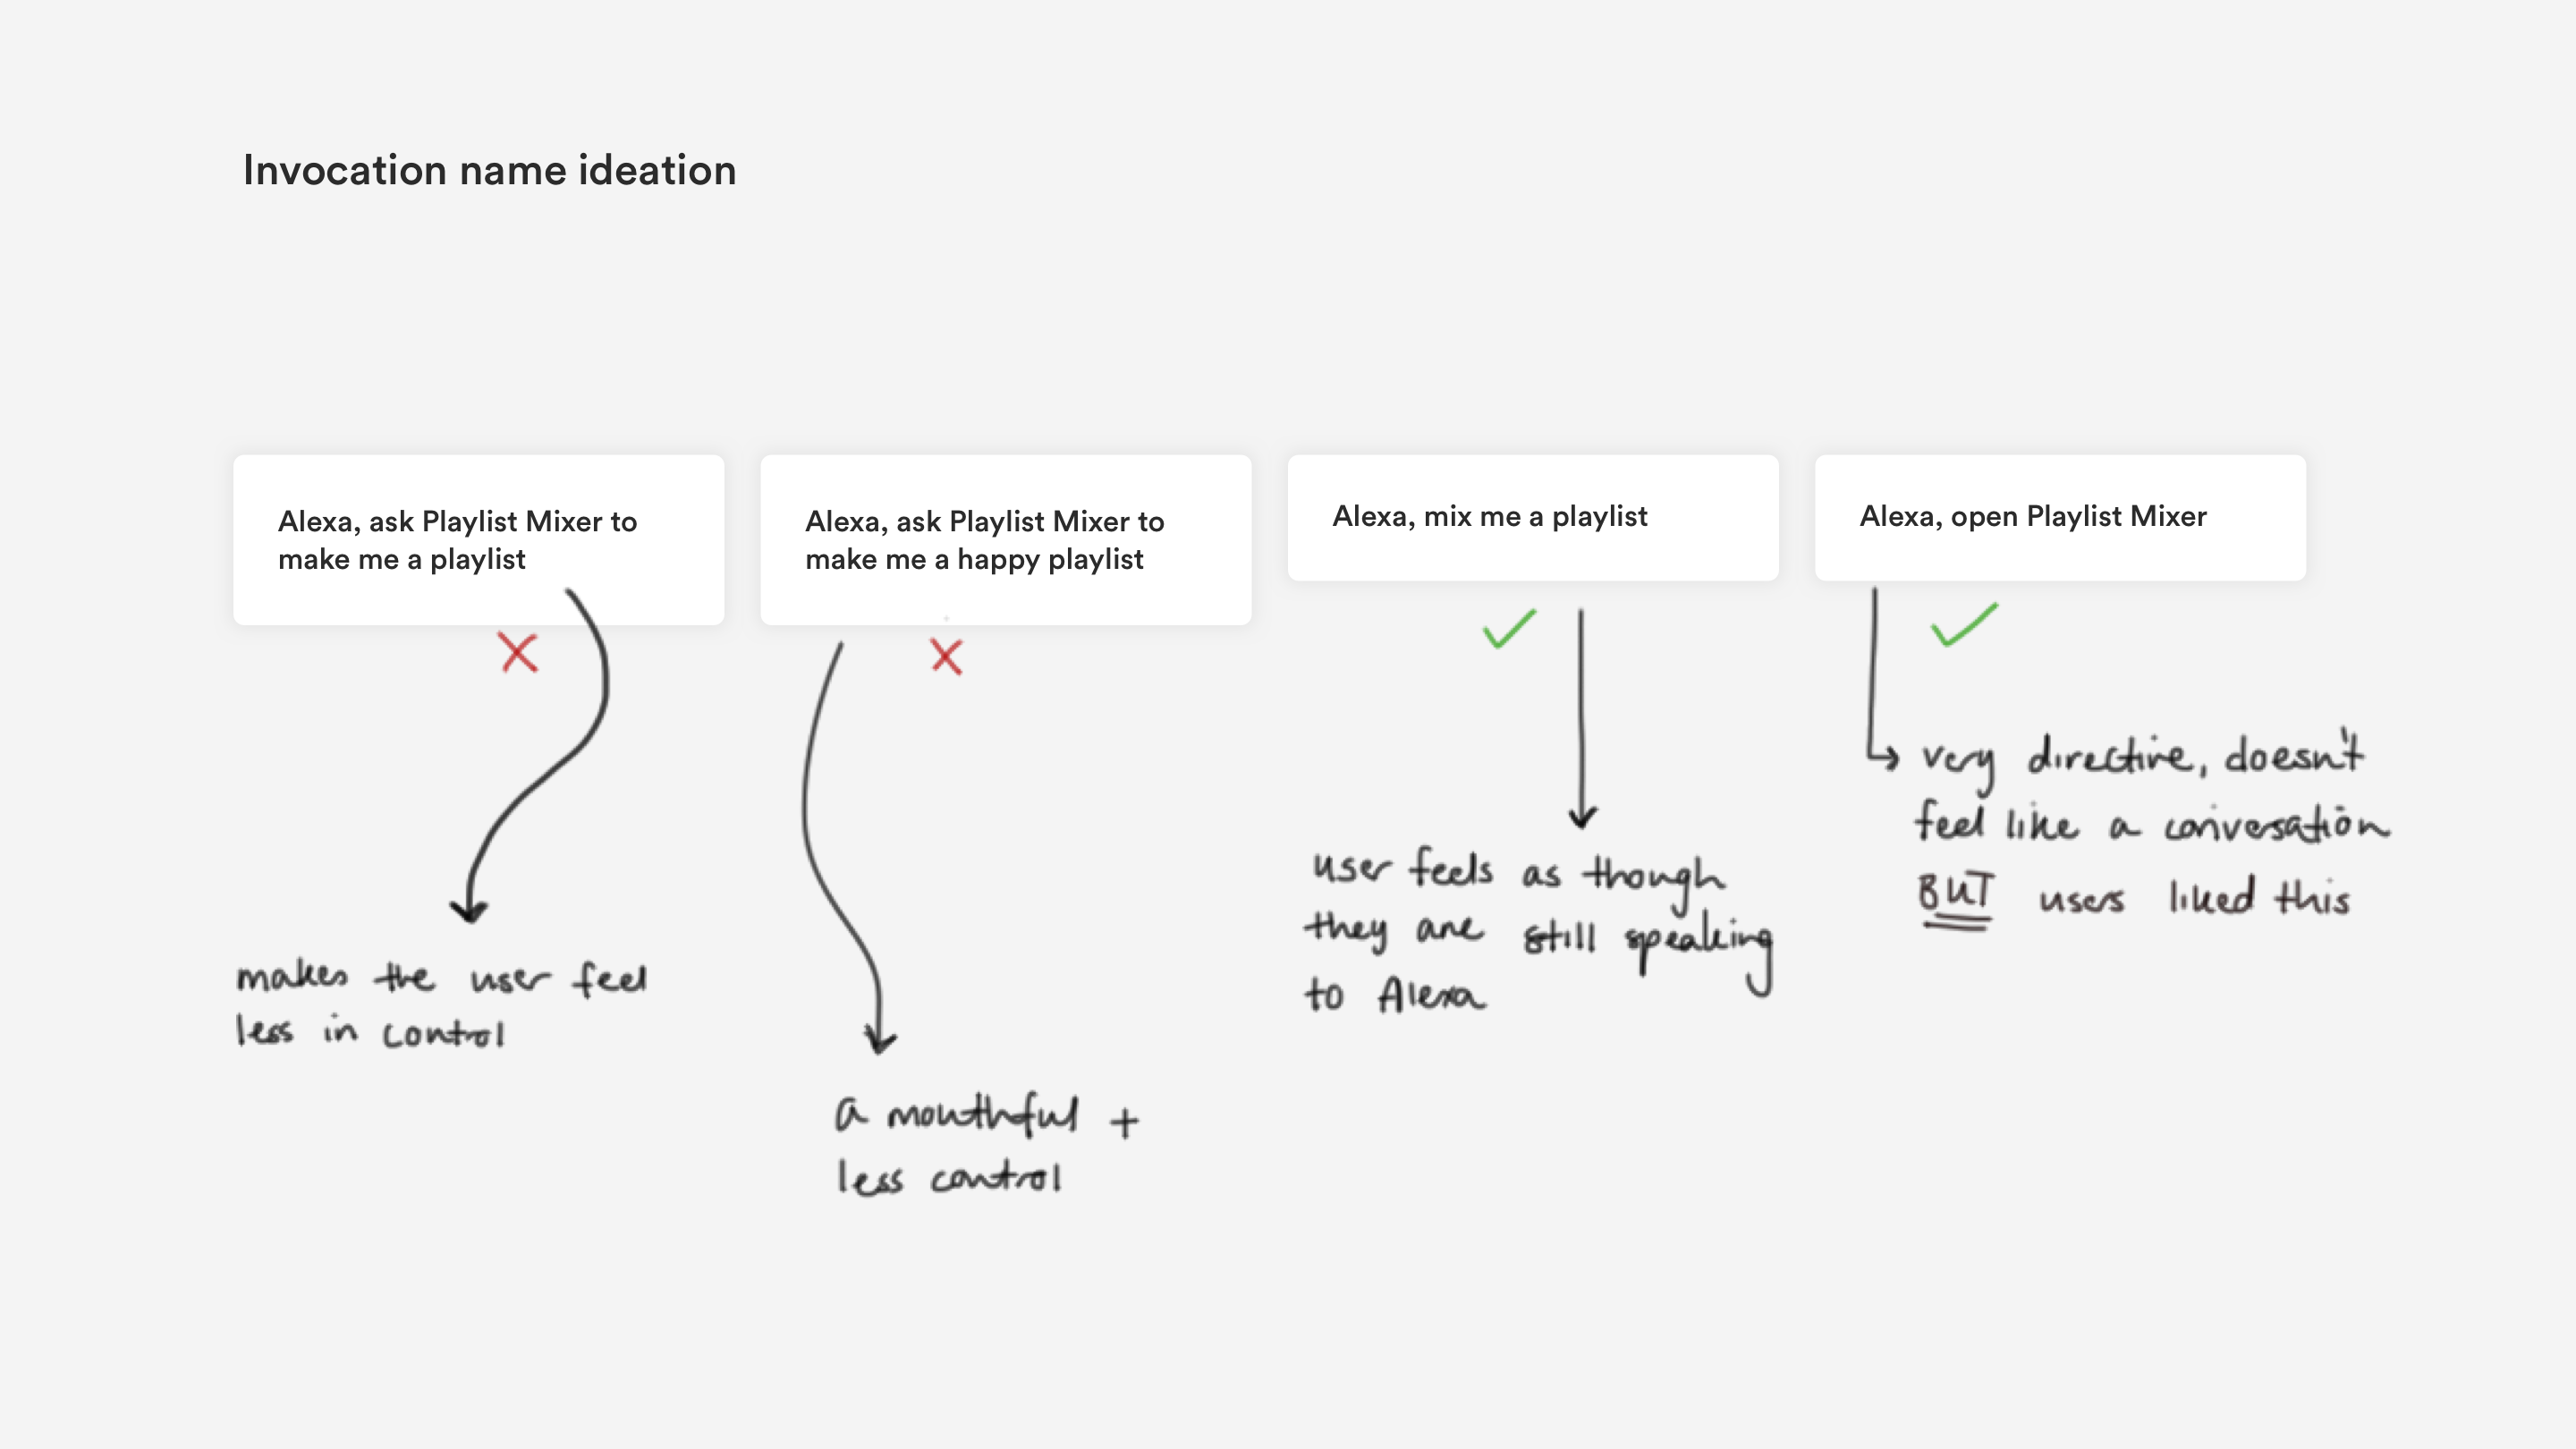 Invocation name ideation
Alexa, ask Playlist Mixer to
make me a playlist
makes the user feel
less in control
Alexa, ask Playlist Mixer to
make me a happy playlist
a mouthful +
less control
Alexa, mix me a playlist
user feels as though
they are still speaking
to Alexa
Alexa, open Playlist Mixer
very directive, doesn't
feel like a conversation
BUT users liked this